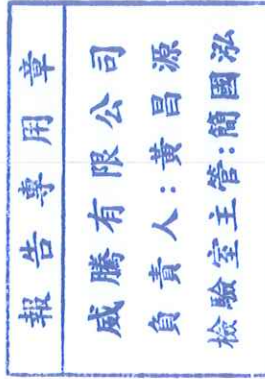 報告專用章
威騰有限公司
負責人:黃昌源
檢驗室主管:簡國泓